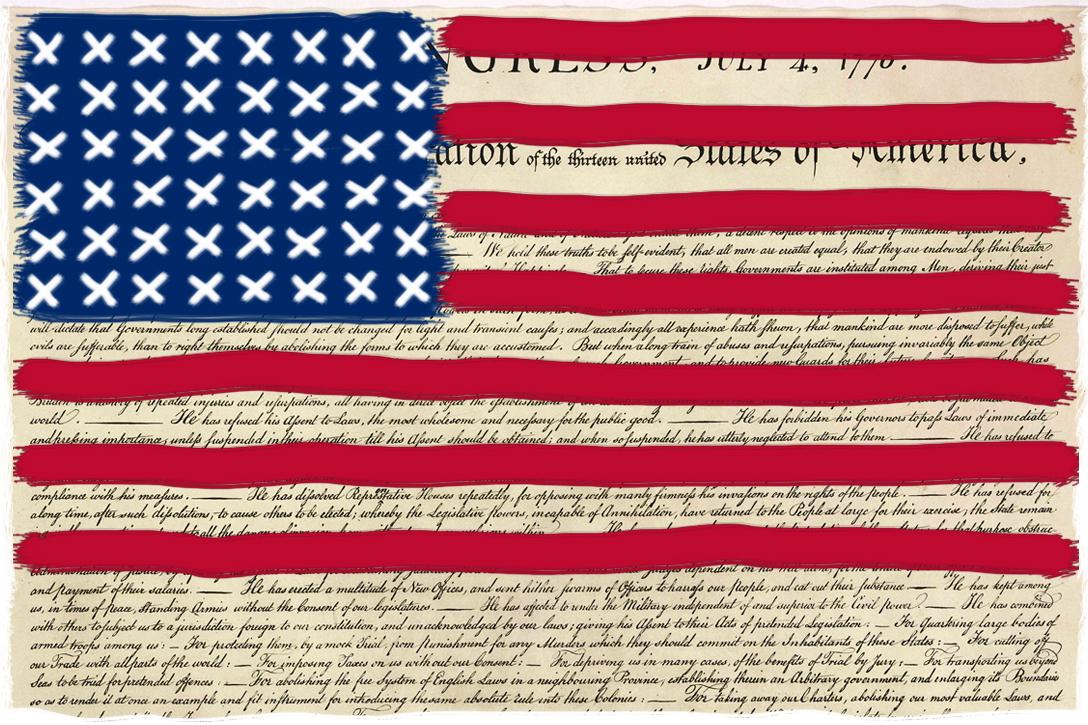 NGRESS, JULY 4, 1776.
ation of the thirteen united States of America,
We hold these truths to be self-evident, that all men are created equal, that they are endowed by their Creator
That to secure these rights, Governments are instituted among Men, deriving their just
will dictate that Governments long established should not be changed for light and transient causes; and accordingly all experience hath shewn, that mankind are more disposed to suffer, while
evils are sufferable, than to right themselves by abolishing the forms to which they are accustomed. But when a long train of abuses and usurpations, pursuing invariably the same Object
Government, and to provide new Guards for their
of repeated injuries and usurpations, all having in direct object the establishment of
world. — He has refused his Assent to Laws, the most wholesome and necessary for the public good. — He has forbidden his Governors to pass Laws of immediate
and pressing importance, unless suspended in their operation till his Assent should be obtained; and when so suspended, he has utterly neglected to attend to them. — He has refused to
compliance with his measures. — He has dissolved Representative Houses repeatedly, for opposing with manly firmness his invasions on the rights of the people. — He has refused for
a long time, after such dissolutions, to cause others to be elected; whereby the Legislative powers, incapable of Annihilation, have returned to the People at large for their exercise; the State remain
dependent on his
and payment of their salaries. — He has erected a multitude of New Offices, and sent hither swarms of Officers to harrass our People, and eat out their substance. — He has kept among
us, in times of peace, Standing Armies without the Consent of our legislatures. — He has affected to render the Military independent of and superior to the Civil power. — He has combined
with others to subject us to a jurisdiction foreign to our constitution, and unacknowledged by our laws; giving his Assent to their Acts of pretended Legislation: — For quartering large bodies of
armed troops among us: — For protecting them, by a mock Trial, from punishment for any Murders which they should commit on the Inhabitants of these States: — For cutting off
our Trade with all parts of the world: — For imposing Taxes on us without our Consent: — For depriving us in many cases, of the benefits of Trial by Jury: — For transporting us beyond
Seas to be tried for pretended offences: — For abolishing the free System of English Laws in a neighbouring Province, establishing therein an Arbitrary government, and enlarging its Boundaries
so as to render it at once an example and fit instrument for introducing the same absolute rule into these Colonies: — For taking away our Charters, abolishing our most valuable Laws, and